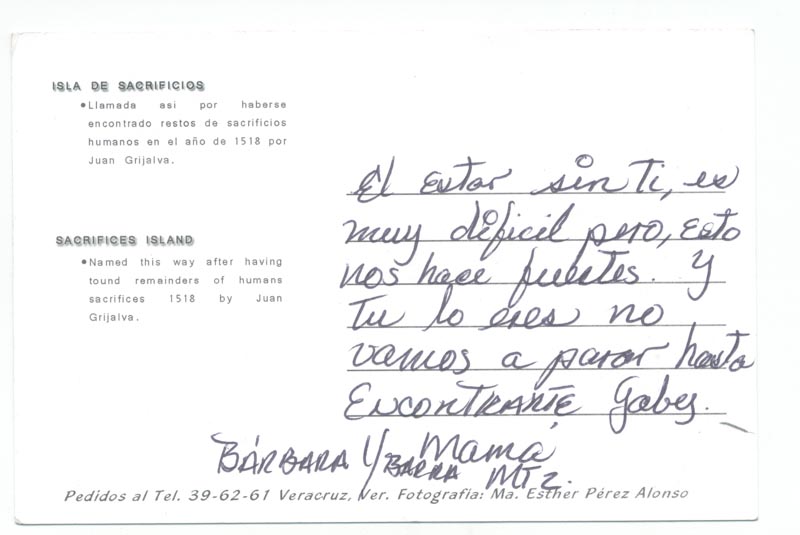 ISLA DE SACRIFICIOS
•Llamada asi por haberse
encontrado restos de sacrificios
humanos en el año de 1518 por
Juan Grijalva.
SACRIFICES ISLAND
•Named this way after having
tound remainders of humans
sacrifices 1518 by Juan
Grijalva.
El estar sin Ti, es
muy dificil pero, esto
nos hace fuertes. Y
Tu lo eres no
vamos a parar hasta
ENCONTRARTE Gaby.
Mamá
BÁRBARA YBARRA MTZ.
Pedidos al Tel. 39-62-61 Veracruz, Ver. Fotografía: Ma. Esther Pérez Alonso